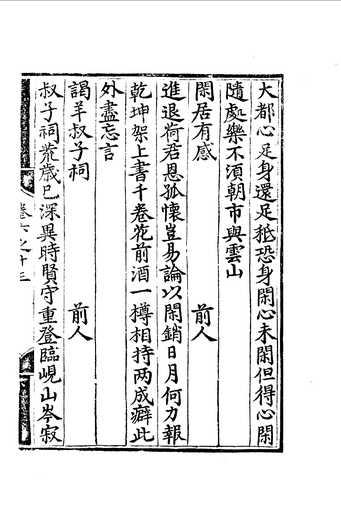 大都心足身還足秪恐身閑心未閑但得心閑
隨處樂不須朝市與雲山
閑居有感　前人
進退荷君恩孤懷豈易論以閑銷日月何力報
乾坤架上書千卷花前酒一樽相持两成癖此
外盡忘言
謁羊叔子祠　前人
叔子祠荒歲已深異時賢守重登臨峴山岑寂
卷六之十三